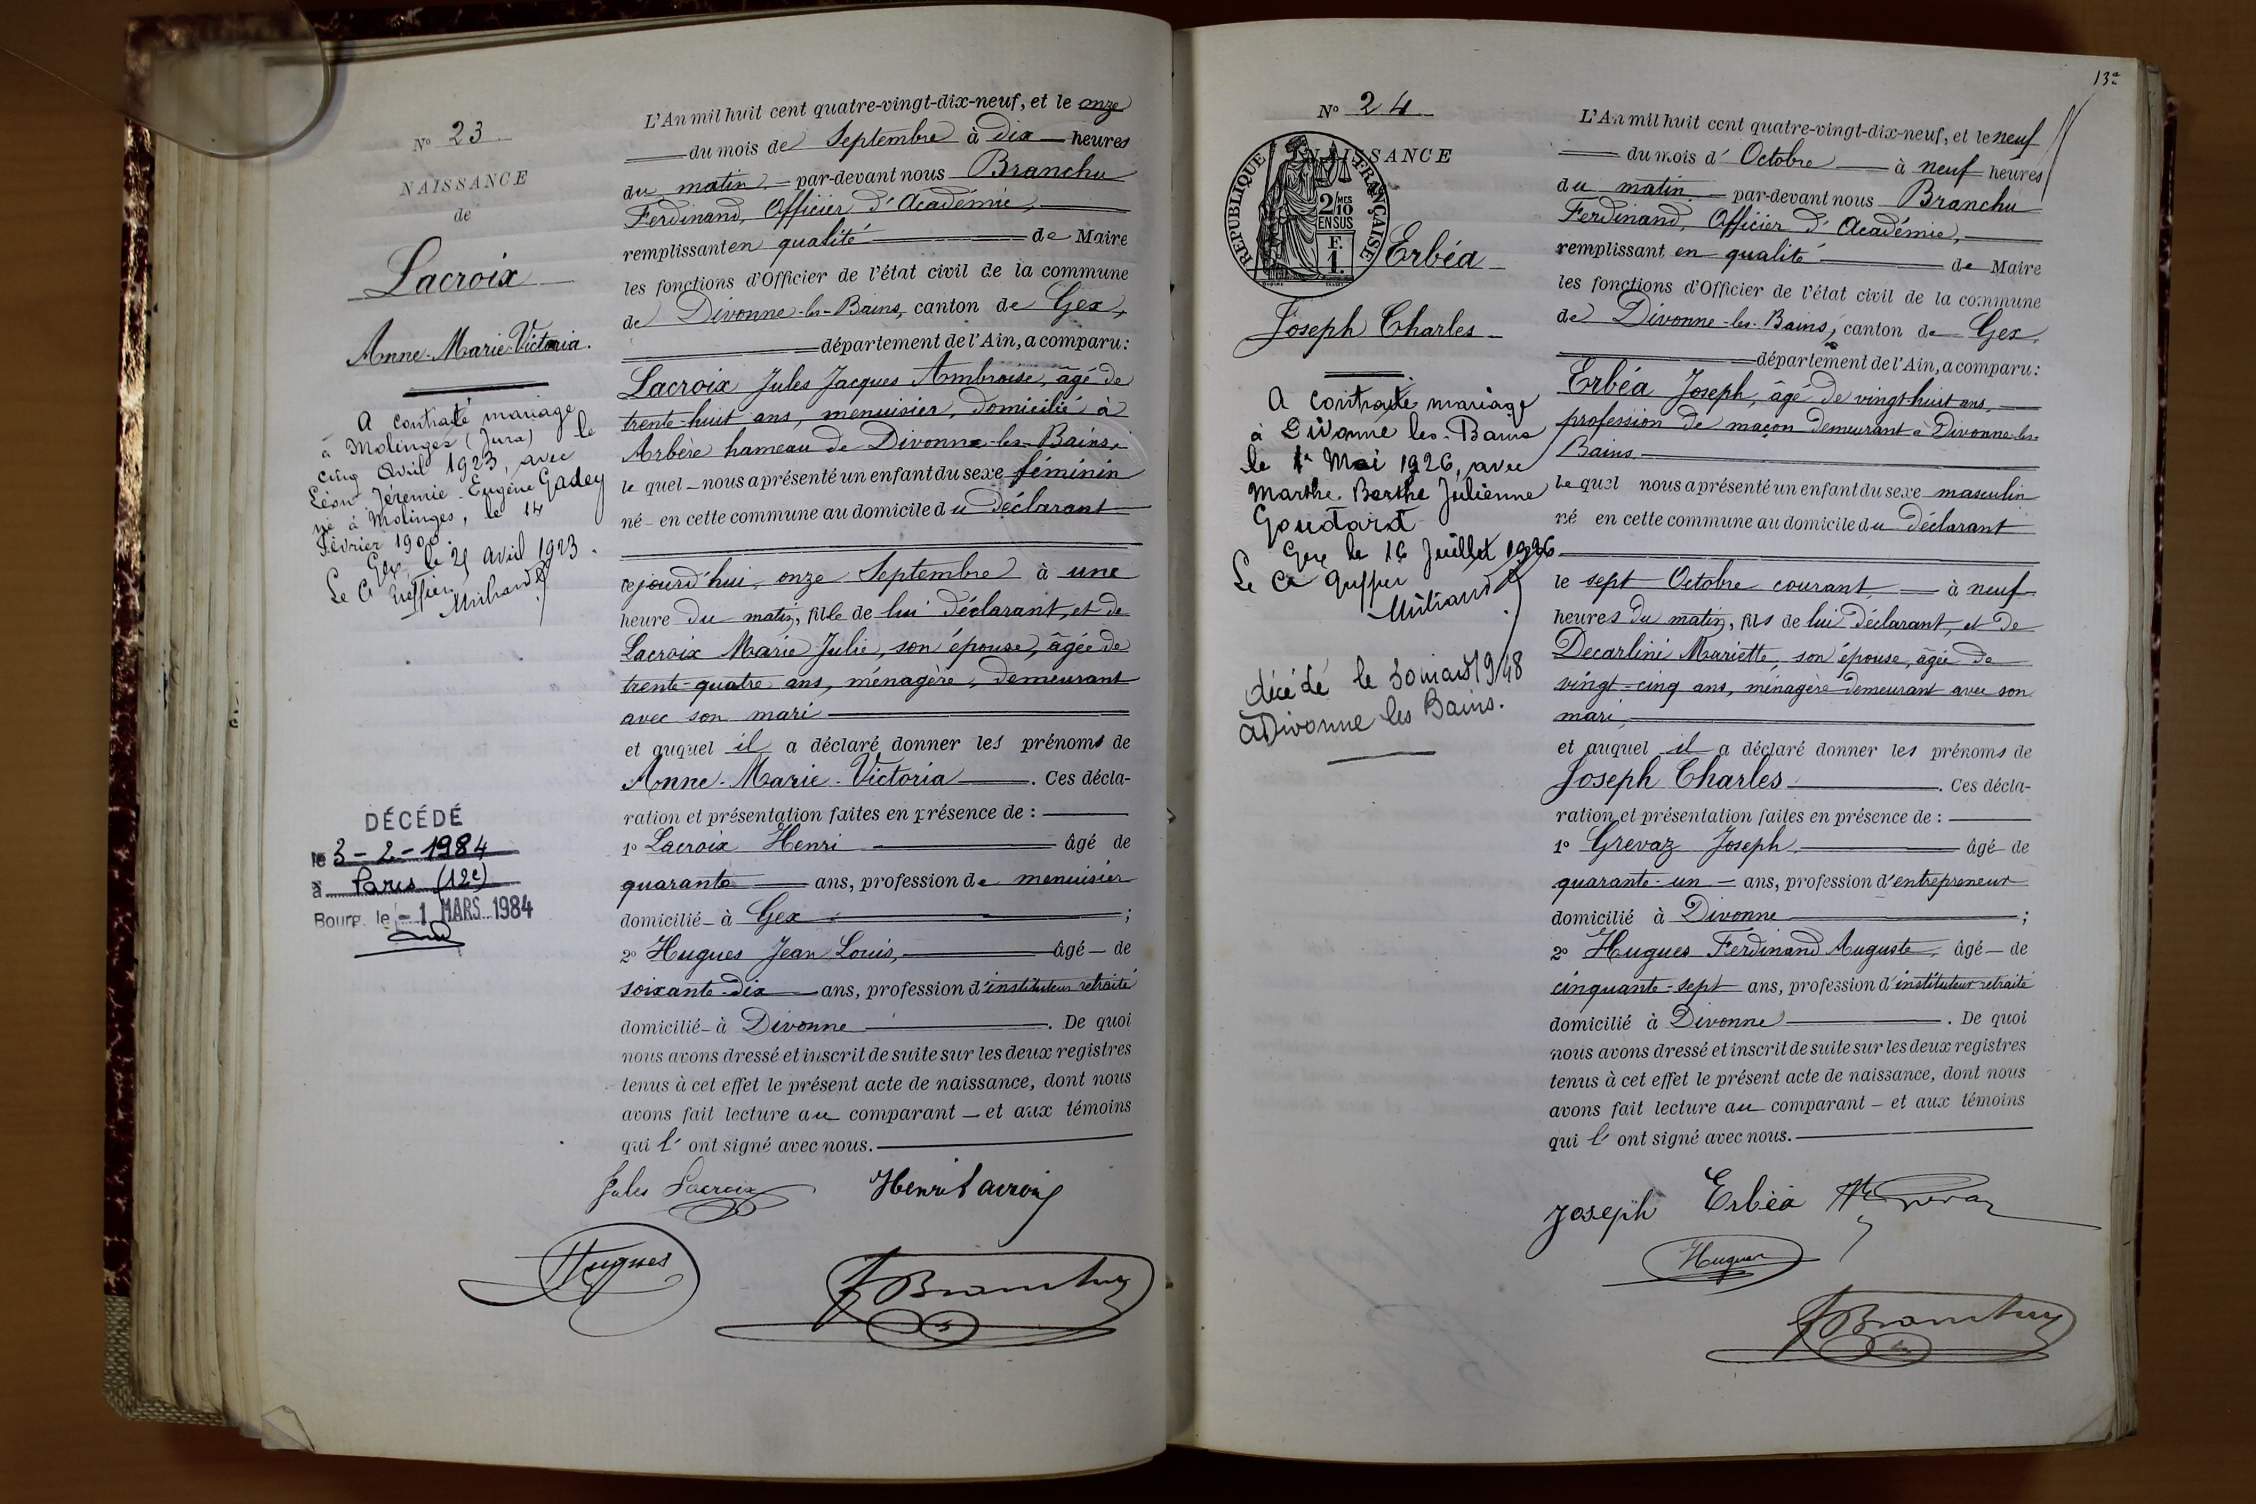 N° 23
NAISSANCE
de
Lacroix
Anne-Marie-Victoria.
A contracté mariage
à Molinges (Jura) le
cinq Avril 1923, avec
Léon Jérémie Eugène Gadey
né à Molinges, le 14
Février 1900
Gex, le 21 avril 1923.
Le Cs Greffier
DÉCÉDÉ
le 3-2-1984
à Paris (12e)
Bourg, le -1 MARS 1984
L'An mil huit cent quatre-vingt-dix-neuf, et le onze
du mois de Septembre à dix heures
du matin par-devant nous Branchu
Ferdinand, Officier d'Académie,
remplissant en qualité de Maire
les fonctions d'Officier de l'état civil de la commune
de Divonne-les-Bains, canton de Gex,
département de l'Ain, a comparu:
Lacroix Jules Jacques Ambroise, âgé de
trente-huit ans, menuisier, domicilié à
Arbère hameau de Divonne-les-Bains,
le quel nous a présenté un enfant du sexe féminin
né en cette commune au domicile du déclarant
cejourd'hui onze Septembre à une
heure du matin, fille de lui déclarant, et de
Lacroix Marie Julie, son épouse, âgée de
trente-quatre ans, ménagère, demeurant
avec son mari
et auquel il a déclaré donner les prénoms de
Anne-Marie-Victoria. Ces décla-
ration et présentation faites en présence de :
1° Lacroix Henri âgé de
quarante ans, profession de menuisier
domicilié à Gex ;
2° Hugues Jean Louis, âgé de
soixante-dix ans, profession d'instituteur retraité
domicilié à Divonne. De quoi
nous avons dressé et inscrit de suite sur les deux registres
tenus à cet effet le présent acte de naissance, dont nous
avons fait lecture au comparant et aux témoins
qui l'ont signé avec nous.
Jules Lacroix Henri Lacroix
Hugues
F Branchu
13e
N° 24
NAISSANCE
RÉPUBLIQUE FRANÇAISE
2 MES
10
EN SUS
F.
1.
Erbéa
Joseph Charles
A contracté mariage
à Divonne les-Bains
le 1er Mai 1926, avec
Marthe Berthe Julienne
Goudard
Gex le 16 Juillet 1926
Le Cs Greffier
décédé le 30 mars 1948
à Divonne les Bains.
L'An mil huit cent quatre-vingt-dix-neuf, et le neuf
du mois d'Octobre à neuf heures
du matin par-devant nous Branchu
Ferdinand, Officier d'Académie,
remplissant en qualité de Maire
les fonctions d'Officier de l'état civil de la commune
de Divonne-les-Bains, canton de Gex,
département de l'Ain, a comparu:
Erbéa Joseph, âgé de vingt-huit ans,
profession de maçon demeurant à Divonne-les-
Bains
le quel nous a présenté un enfant du sexe masculin
né en cette commune au domicile du déclarant
le sept Octobre courant à neuf
heures du matin, fils de lui déclarant, et de
Decarlini Mariette, son épouse, âgée de
vingt-cinq ans, ménagère demeurant avec son
mari,
et auquel il a déclaré donner les prénoms de
Joseph Charles. Ces décla-
ration et présentation faites en présence de :
1° Grevaz Joseph âgé de
quarante-un ans, profession d'entrepreneur
domicilié à Divonne ;
2° Hugues Ferdinand Auguste, âgé de
cinquante-sept ans, profession d'instituteur retraité
domicilié à Divonne. De quoi
nous avons dressé et inscrit de suite sur les deux registres
tenus à cet effet le présent acte de naissance, dont nous
avons fait lecture au comparant et aux témoins
qui l'ont signé avec nous.
Joseph Erbéa
Hugues
F Branchu